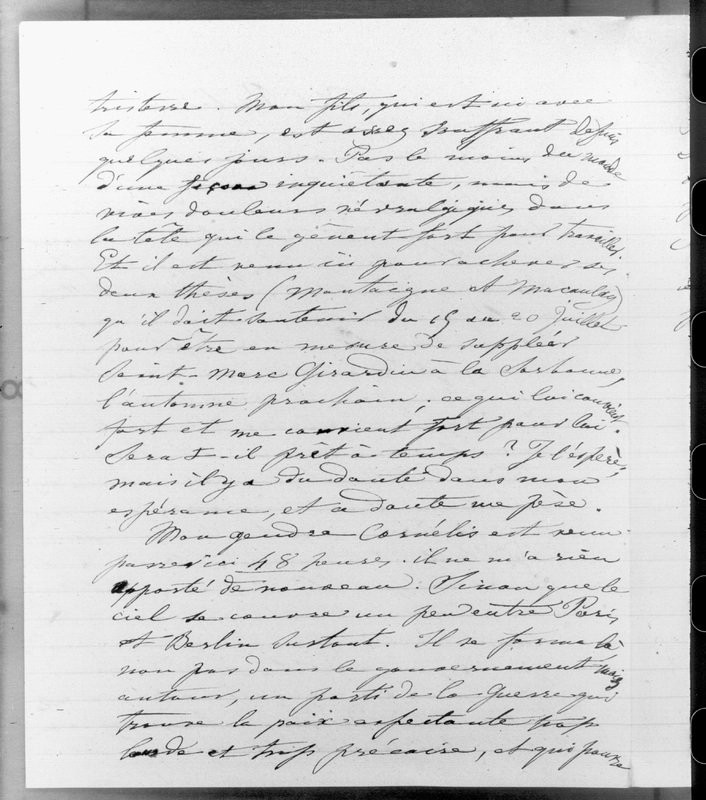 tristesse. Mon fils, qui est ici avec
sa femme, est assez souffrant depuis
quelques jours. Pas le moins du monde
d'une façon inquiétante, mais de
vives douleurs névralgiques dans
la tête qui le gênent fort pour travailler.
Et il est venu ici pour achever ses
deux thèses (Montaigne et Macaulay)
qu'il doit soutenir du 15 au 20 Juillet
pour être en mesure de suppléer
Saint-Marc Girardin à la Sorbonne,
l'automne prochain; ce qui lui convient
fort et me convient fort pour lui.
Sera-t-il prêt à temps? Je l'espère,
mais il y a du doute dans mon
espérance, et ce doute me pèse.
Mon gendre Cornélis est venu
passer ici 48 heures. il ne m'a rien
apporté de nouveau. Sinon que le
ciel se couvre un peu entre Paris
et Berlin surtout. Il se forme là
non pas dans le gouvernement mais
autour, un parti de la Guerre qui
trouve la paix expectante trop
lourde et trop précaire, et qui pourra